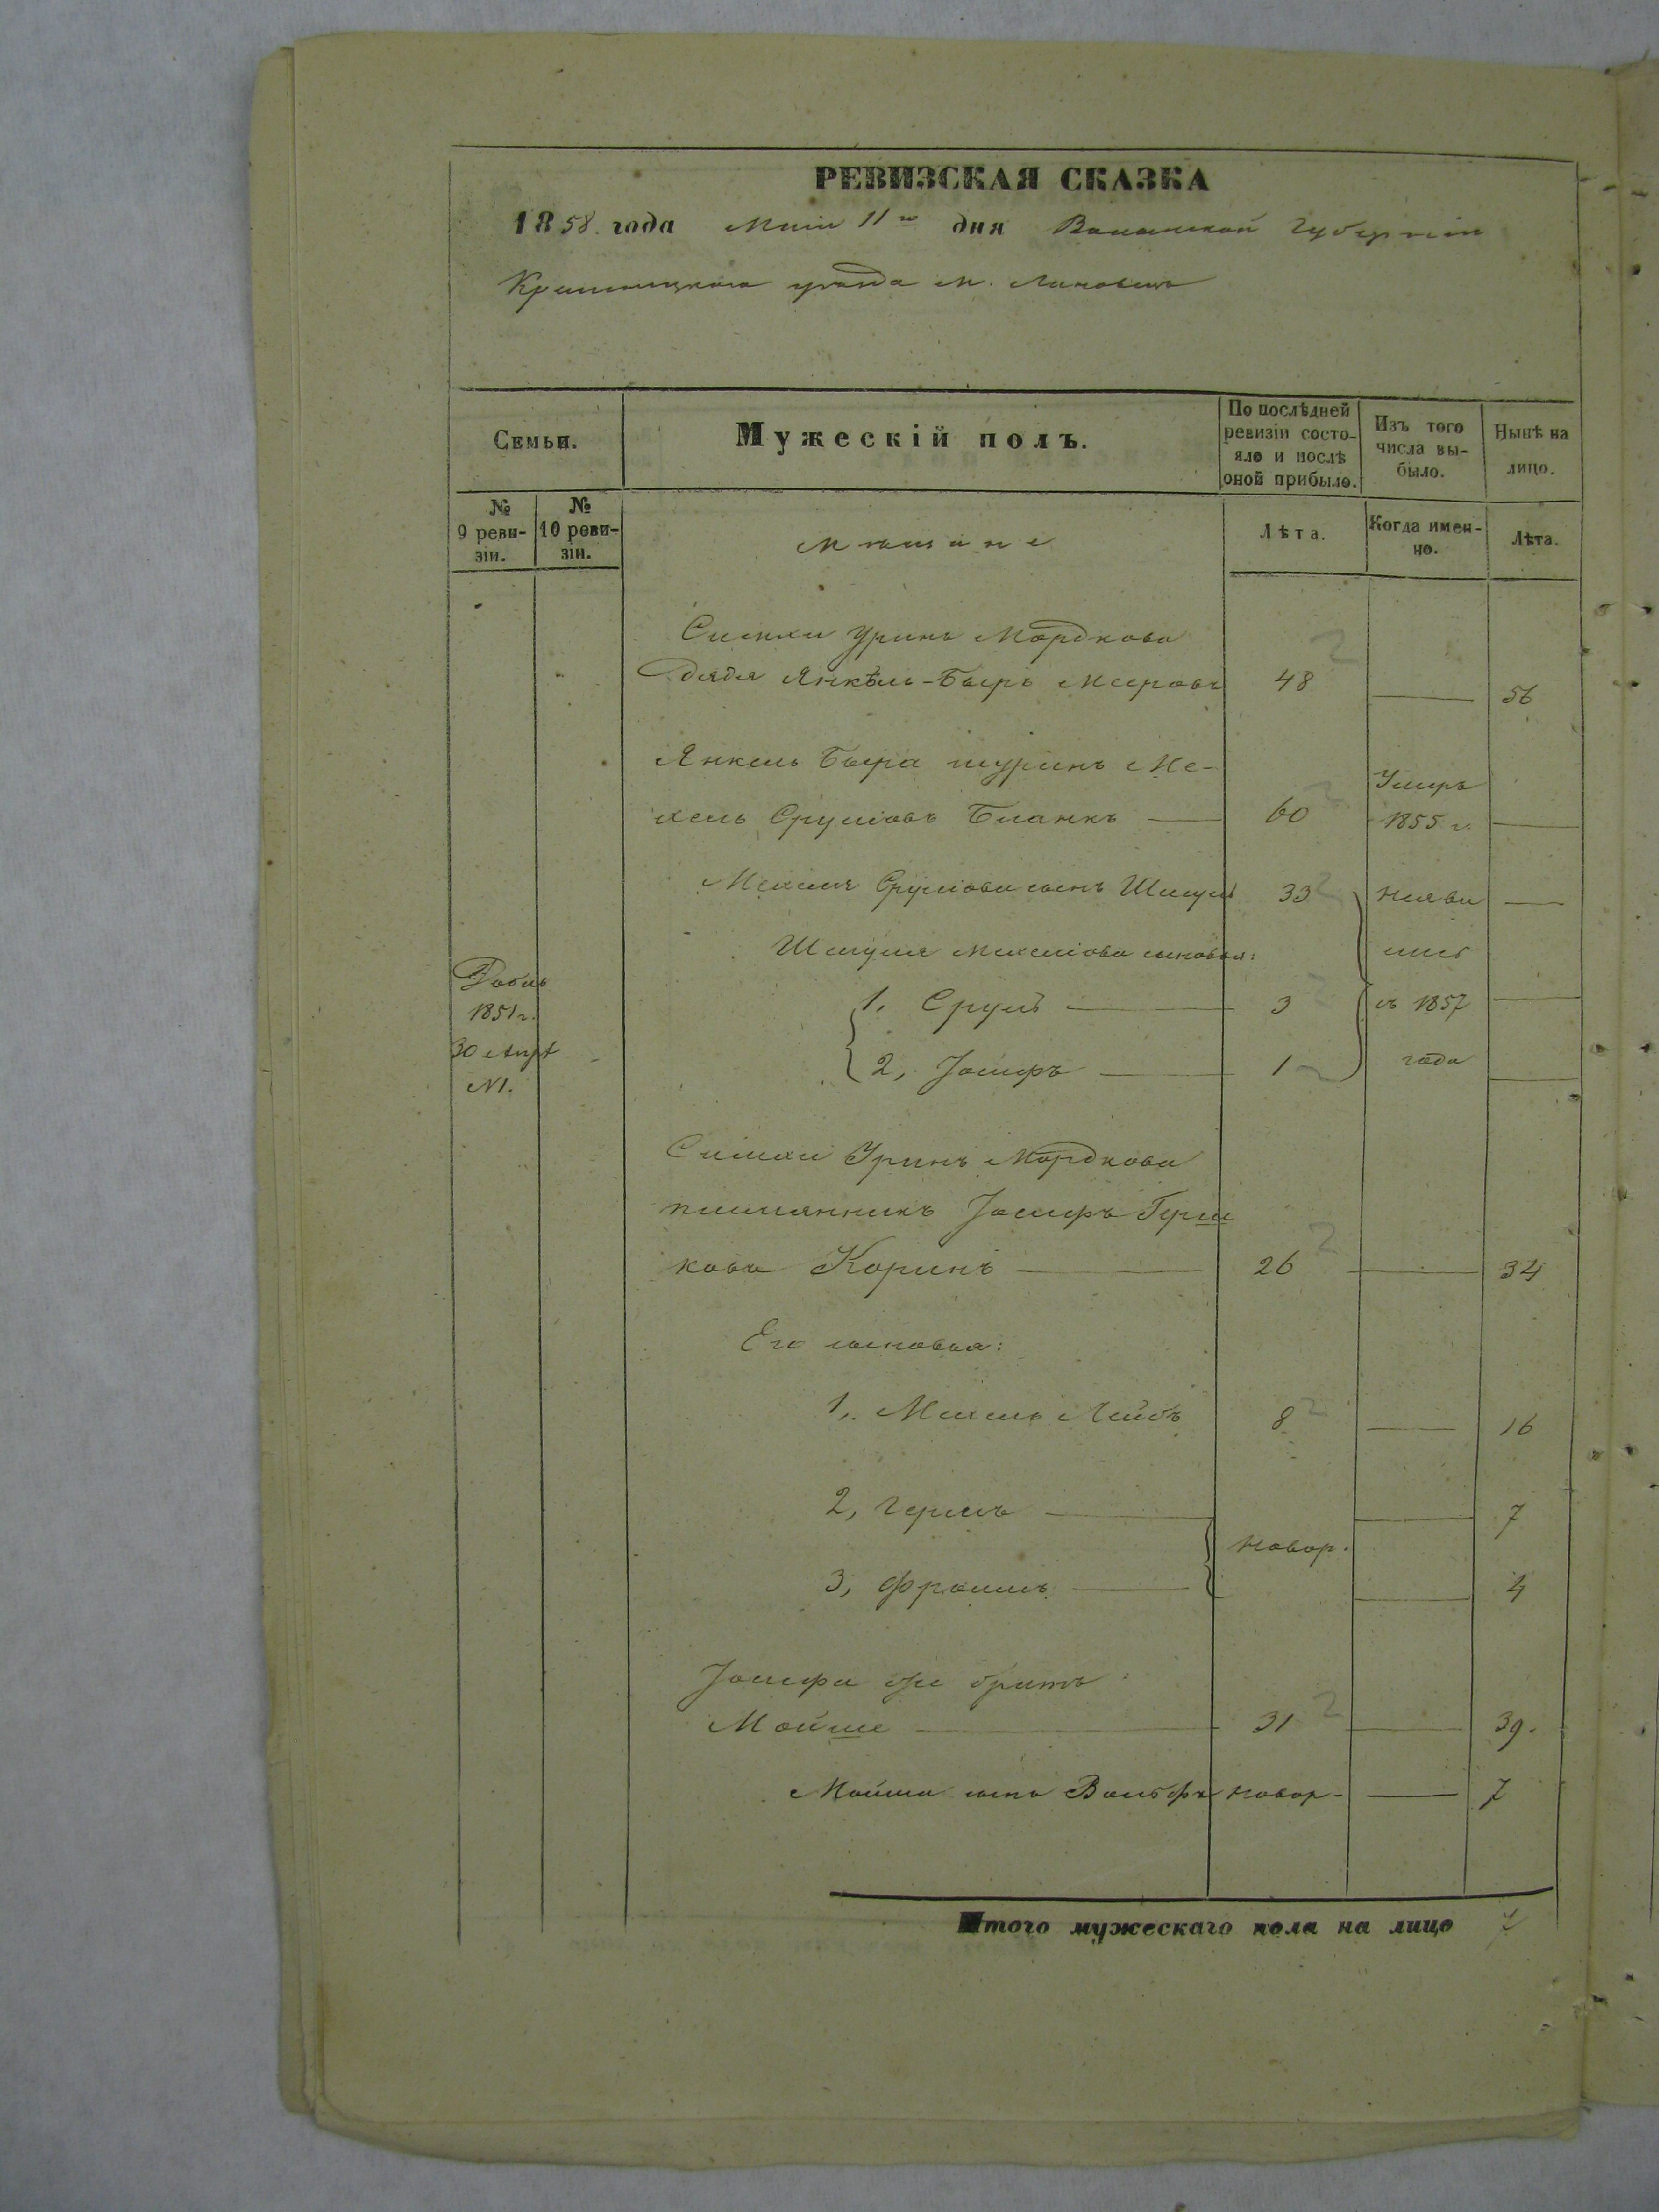 РЕВИЗСКАЯ СКАЗКА
1858. года Маія 11го дня Волынской Губерніи
Кременецкаго уѣзда м. Лановецъ
Семьи.
Мужескій полъ.
По послѣдней ревизіи состояло и послѣ оной прибыло.
Изъ того числа выбыло.
Нынѣ на лицо.
№ 9 ревизіи.
№ 10 ревизіи.
Мѣщане
Лѣта.
Когда именно.
Лѣта.
Симхи Уринъ Мордкова
дядя Янкель-Беръ Мееровъ 48 56
Янкель Бера шуринъ Ме-
хель Срулювъ Бланкъ 60 Умеръ 1855 г.
Мехеля Срулiова сынъ Шмуль 33 неяви
Шмуля Мехелiова сыновья: лись
1, Сруль 3 съ 1857
2, Іосифъ 1 года
1851 г.
30
№1.
Симхи Уринъ Мордкова
племянникъ Іосифъ Герш
кова Коринъ 26 34
Его сыновья:
1, Мехель Лейбъ 8 16
2, Гершъ 7
Новор.
3, Фроимъ 4
Іосифа же братъ
Мойше 31 39.
Мойши сынъ Вольфъ новор- 7
Итого мужескаго пола на лицо 7